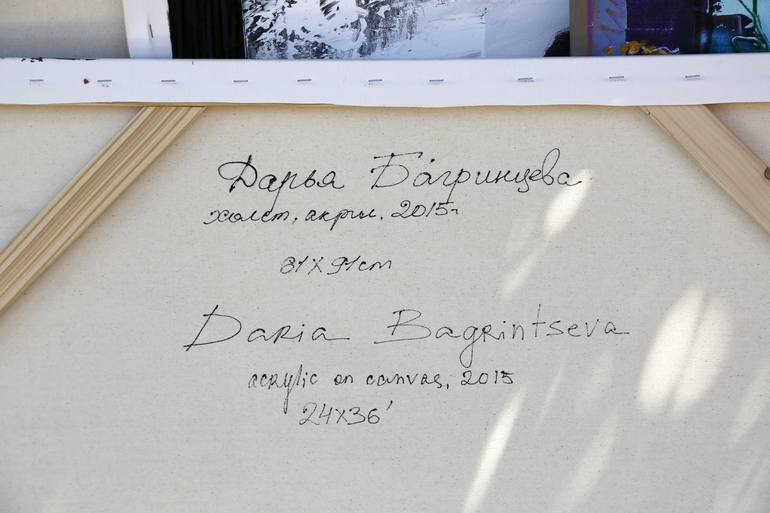 Дарья Багринцева
холст, акрил. 2015г
81x91cm
Daria Bagrintseva
acrylic on canvas, 2015
24x36'